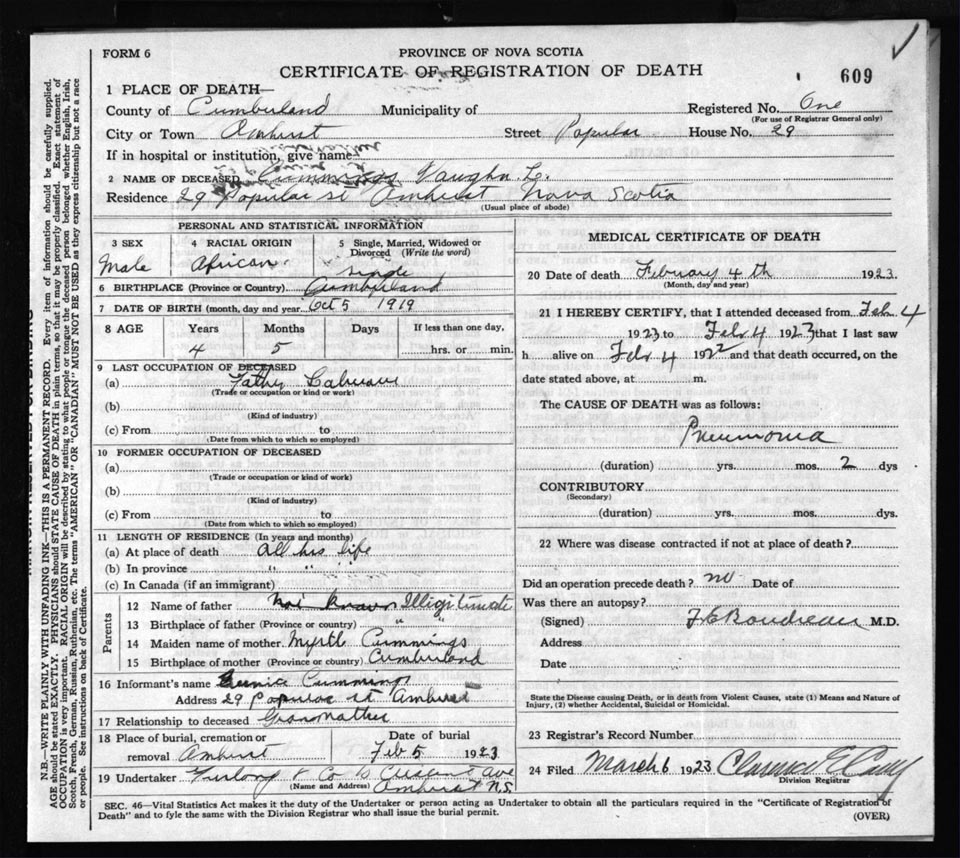 FORM 6
PROVINCE OF NOVA SCOTIA
CERTIFICATE OF REGISTRATION OF DEATH
609
1 PLACE OF DEATH—
County of Cumberland Municipality of Registered No. One
(For use of Registrar General only)
City or Town Amherst Street Popular House No. 29
If in hospital or institution, give name
2 NAME OF DECEASED Cummings Vaughn L.
Residence 29 Popular St Amherst Nova Scotia
(Usual place of abode)
PERSONAL AND STATISTICAL INFORMATION
3 SEX 4 RACIAL ORIGIN 5 Single, Married, Widowed or Divorced (Write the word)
Male African single
6 BIRTHPLACE (Province or Country) Cumberland
7 DATE OF BIRTH (month, day and year) Oct 5 1919
8 AGE Years Months Days If less than one day,
4 5 hrs. or min.
9 LAST OCCUPATION OF DECEASED
(a) Father
(Trade or occupation or kind or work)
(b)
(Kind of industry)
(c) From to
(Date from which to which so employed)
10 FORMER OCCUPATION OF DECEASED
(a)
(Trade or occupation or kind of work)
(b)
(Kind of industry)
(c) From to
(Date from which to which so employed)
11 LENGTH OF RESIDENCE (In years and months)
(a) At place of death all his life
(b) In province " " "
(c) In Canada (if an immigrant)
Parents
12 Name of father Not known Illigitimate
13 Birthplace of father (Province or country) " "
14 Maiden name of mother Myrtle Cummings
15 Birthplace of mother (Province or country) Cumberland
16 Informant's name Cummings
Address 29 Popular st Amherst
17 Relationship to deceased Grandmother
18 Place of burial, cremation or removal Amherst Date of burial Feb 5 1923
19 Undertaker Furlong & Co 10 Crescent Ave
(Name and Address) Amherst N.S
MEDICAL CERTIFICATE OF DEATH
20 Date of death February 4th 1923
(Month, day and year)
21 I HEREBY CERTIFY, that I attended deceased from Feb 4
1923 to Feb 4 1923 that I last saw
h alive on Feb 4 1922 and that death occurred, on the
date stated above, at m.
The CAUSE OF DEATH was as follows:
Pneumonia
(duration) yrs. mos. 2 dys
CONTRIBUTORY
(Secondary)
(duration) yrs. mos. dys.
22 Where was disease contracted if not at place of death?
Did an operation precede death? no Date of
Was there an autopsy?
(Signed) F E Boudreau M.D.
Address
Date
State the Disease causing Death, or in death from Violent Causes, state (1) Means and Nature of
Injury, (2) whether Accidental, Suicidal or Homicidal.
23 Registrar's Record Number
24 Filed March 6 1923 Clarence E Casey
Division Registrar
SEC. 46—Vital Statistics Act makes it the duty of the Undertaker or person acting as Undertaker to obtain all the particulars required in the "Certificate of Registration of
Death" and to fyle the same with the Division Registrar who shall issue the burial permit.
(OVER)
N.B.—WRITE PLAINLY WITH UNFADING INK—THIS IS A PERMANENT RECORD. Every item of information should be carefully supplied.
AGE should be stated EXACTLY. PHYSICIANS should STATE CAUSE OF DEATH in plain terms, so that it may be properly classified. Exact statement of
OCCUPATION is very important. RACIAL ORIGIN will be described by stating to what people or tongue the deceased person belonged whether English, Irish,
Scotch, French, German, Russian, Ruthenian, etc. The terms "AMERICAN" OR "CANADIAN" MUST NOT BE USED as they express citizenship but not a race
or people. See instructions on back of Certificate.